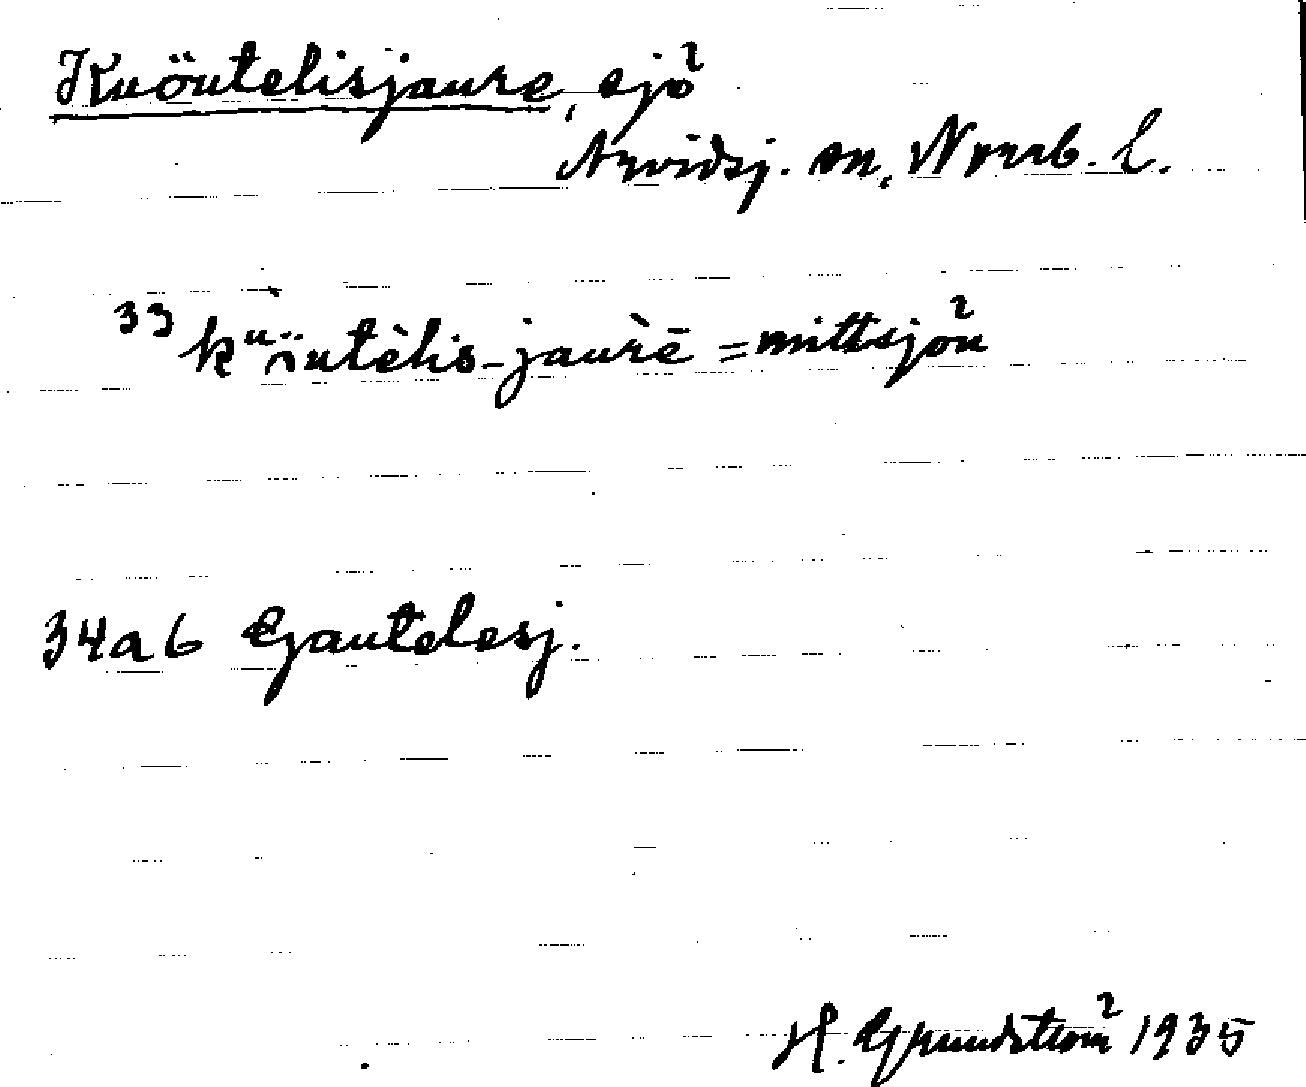 Kuöutelisjaure, sjö
Arvidsj. sn, Norrb. l.
33 kᵘöutèlis-jaùrē = mittsjön
34ab Gautelesj.
H. Grundström 1935